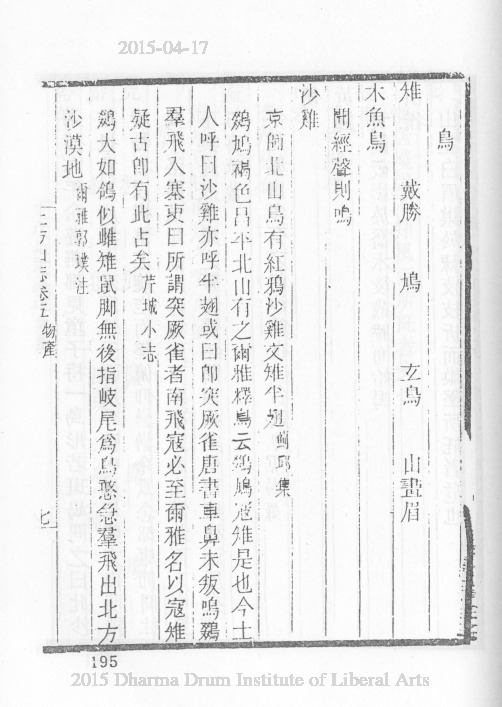 2015-04-17
鳥
雉 戴勝 鳩 玄鳥 山畫眉
木魚鳥
開經聲則鳴
沙雞
京師北山鳥有紅鴉沙雞文雉半翅薊邱集
鵽鳩褐色昌平北山有之爾雅釋鳥云鵽鳩寇雉是也今土
人呼曰沙雞亦呼半翅或曰卽突厥雀唐書車鼻未叛鳴鵽
羣飛入塞吏曰所謂突厥雀者南飛寇必至爾雅名以寇雉
疑古卽有此占矣芹城小志
鵽大如鴿似雌雉鼠脚無後指岐尾爲鳥憨急羣飛出北方
沙漠地爾雅郭璞注
上方山志卷五 物產 七
195
2015 Dharma Drum Institute of Liberal Arts